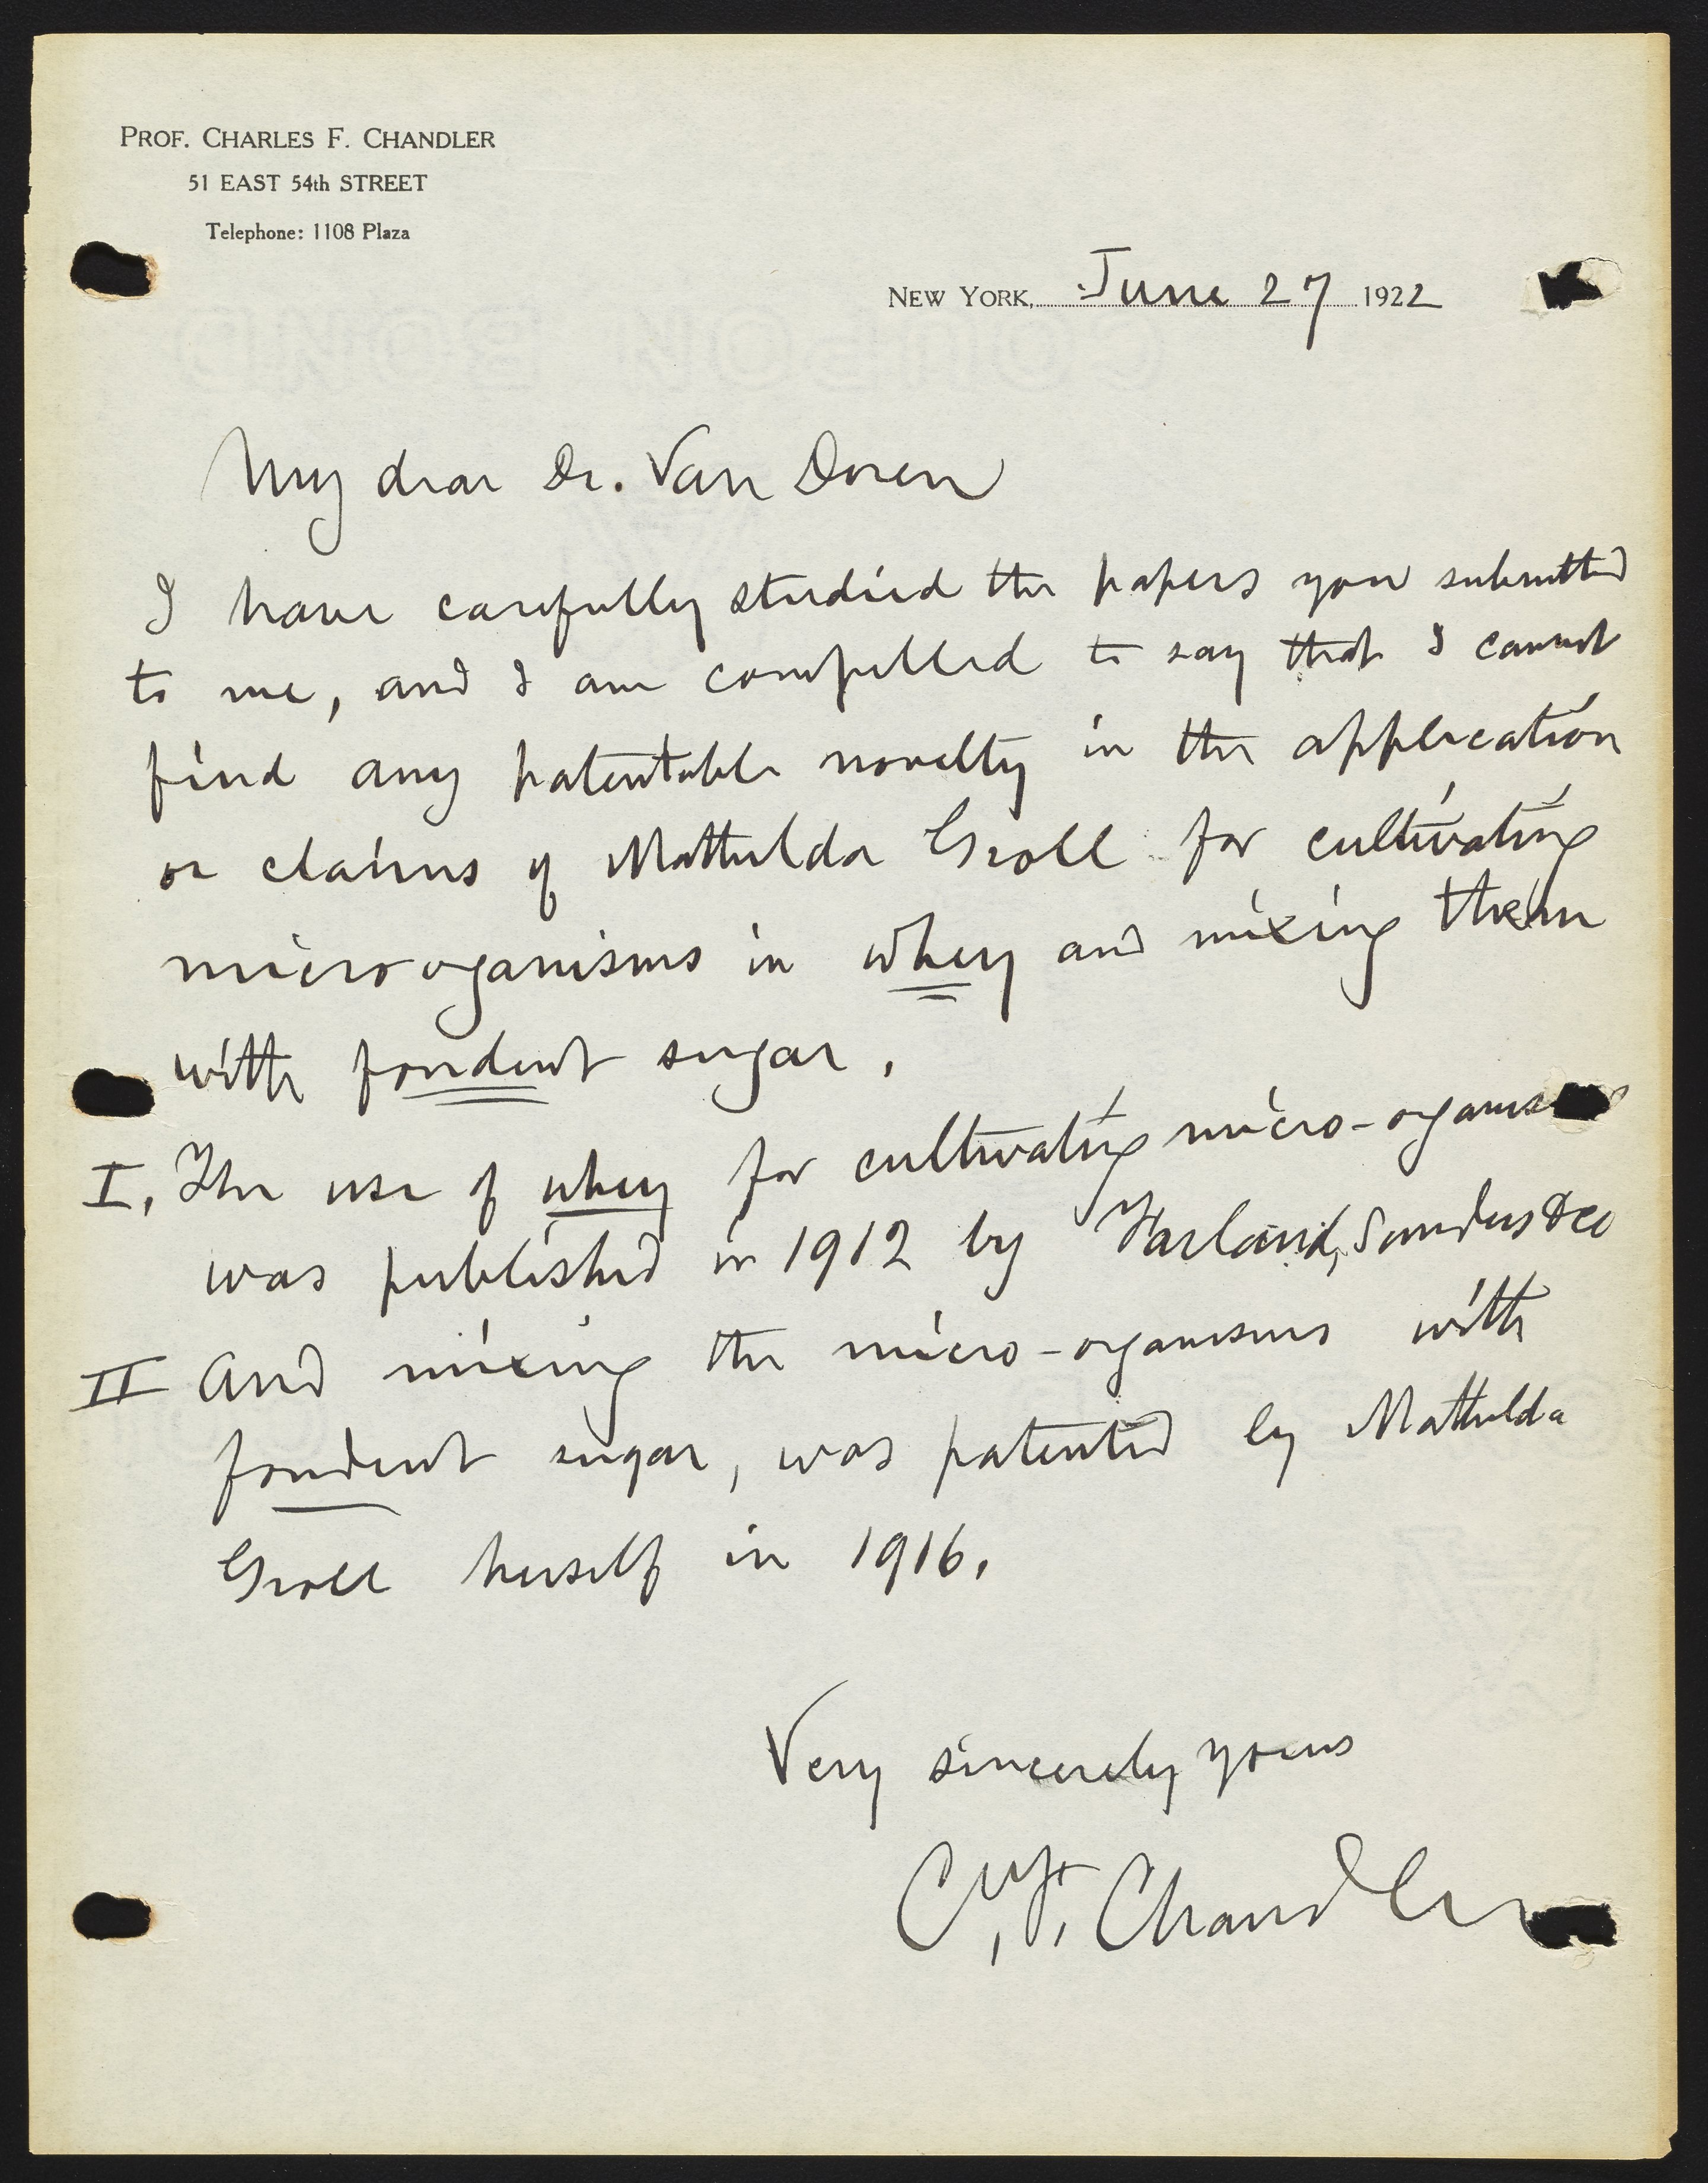 PROF. CHARLES F. CHANDLER
51 EAST 54th STREET
Telephone: 1108 Plaza
NEW YORK, June 27 1922
My dear Dr. Van Doren
I have carefully studied the papers you submitted
to me, and I am compelled to say that I cannot
find any patentable novelty in the application
or claims of Mathilda Groll for cultivating
microorganisms in whey and mixing them
with fondent sugar.
I. The use of whey for cultivating micro-organisms
was published in 1912 by
II And mixing the micro-organisms with
fondent sugar, was patented by Mathilda
Groll herself in 1916.
Very sincerely yours
C. F. Chandler